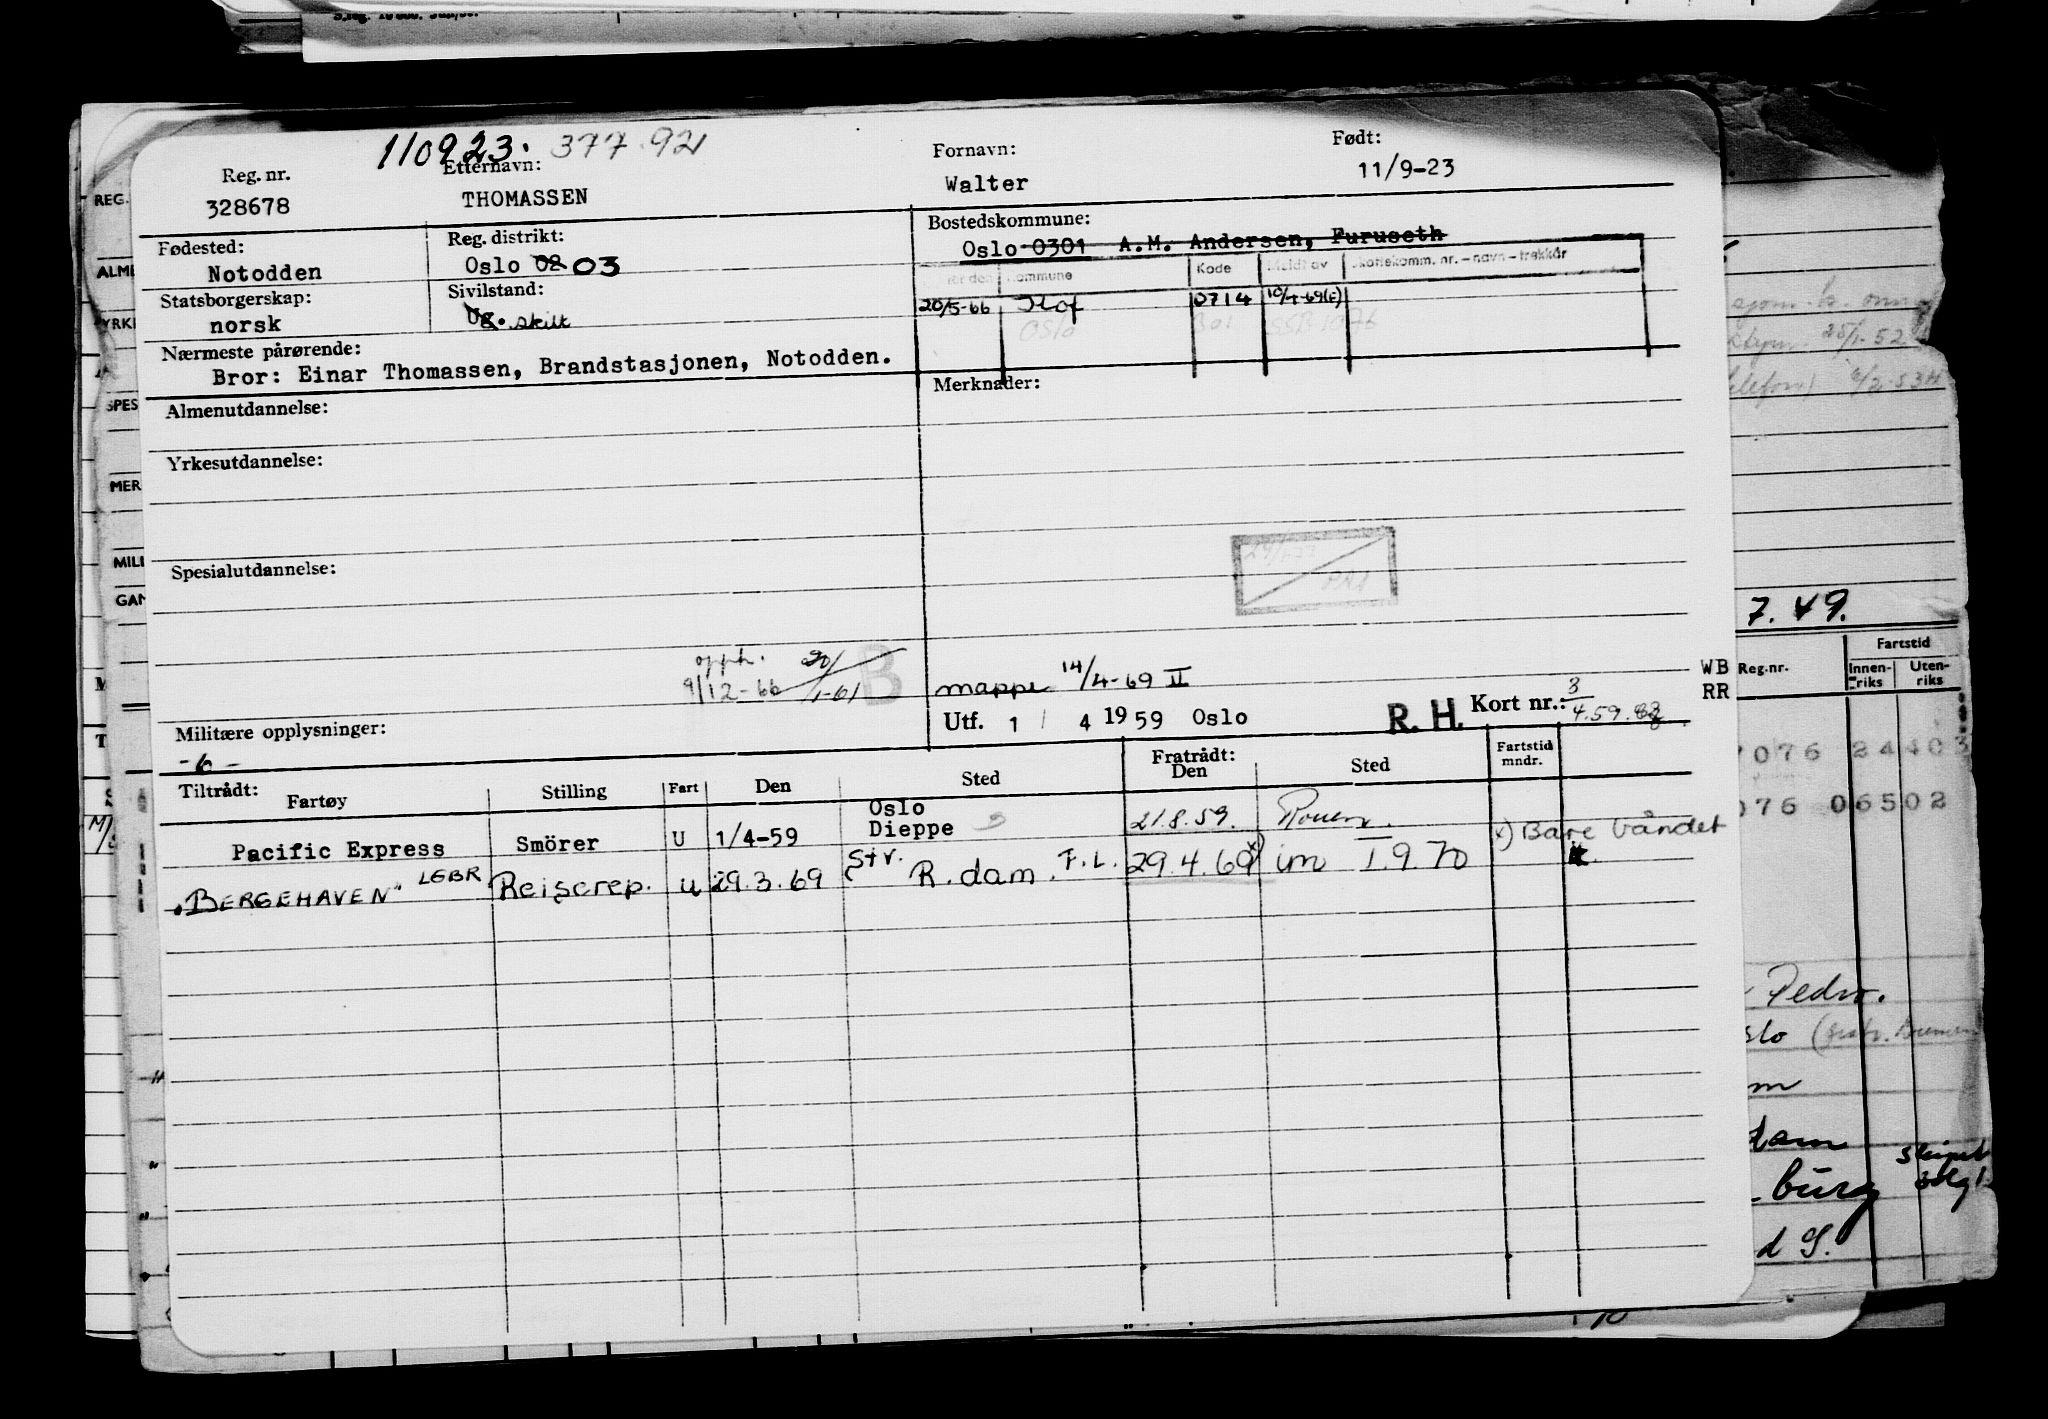 110923. 377 92
Reg. nr. Etternavn: Fornavn: Født:
328678 THOMASSEN Walter 11/9-23
Fødested: Reg. distrikt: Bostedskommune:
Notodden Oslo 02 03 Oslo 0301 A.M. Andersen, Furuseth
Kommune Kode Meldt av Skattekomm. nr. – navn – trekkår
Statsborgerskap: Sivilstand: 20/5-66 Hof 0714 10/4-69(E)
norsk Ug. skilt Oslo
Nærmeste pårørende:
Bror: Einar Thomassen, Brandstasjonen, Notodden.
Almenutdannelse: Merknader:
Yrkesutdannelse:
Spesialutdannelse:
opph. 20/1-61 B
9/12-66
mappe 14/4-69 II
Militære opplysninger: Utf. 1 / 4 1959 Oslo R. H. Kort nr.: 3
4.59.
- 6 -
Tiltrådt: Fratrådt: Fartstid mndr.
Fartøy Stilling Fart Den Sted Den Sted
Oslo
Pacific Express Smörer U 1/4-59 Dieppe 21.8.59. Rouen.
"BERGEHAVEN" LGBR Reiserep. u 29.3.69 Str. R.dam. F.L. 29.4.69 x) im 1.9.70 x) Bare båndet
REG.
ALME
YRKE
SPES
MER
MILI
GAN
25/1-52
7. 49.
WB
RR
Reg.nr. Fartstid
Innen-riks Uten-riks
7076 24403
076 06502
Pedro.
slo
dam
burg
d S.